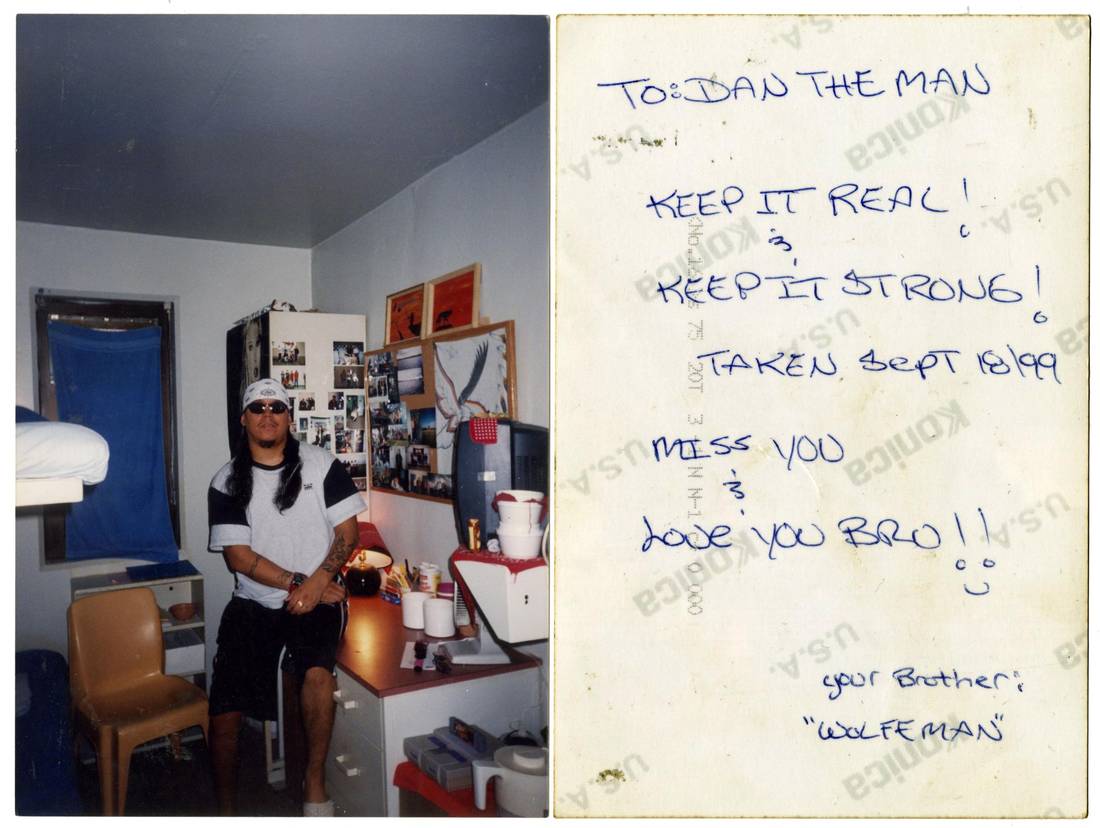 TO: DAN THE MAN
KEEP IT REAL!
&
KEEP IT STRONG!
TAKEN SEPT 18/99
MISS YOU
&
LOVE YOU BRO!!
your Brother:
"WOLFEMAN"
Konica
U.S.A.